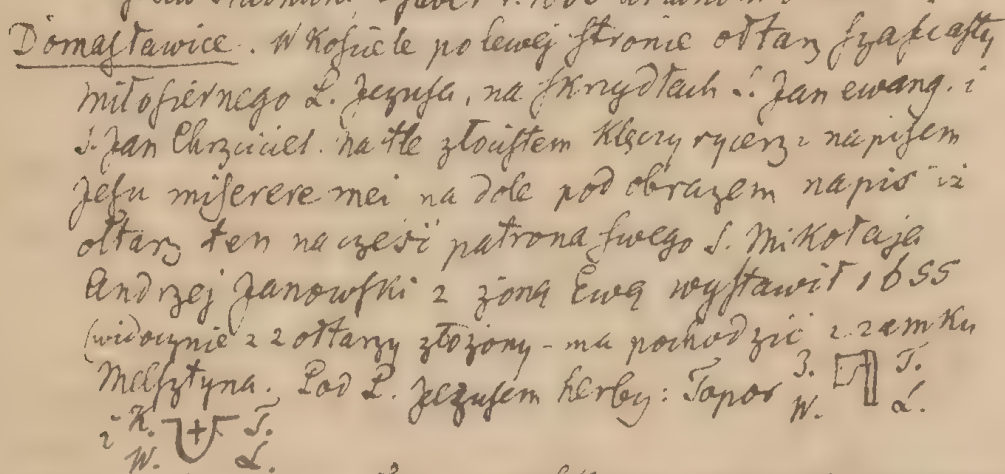 Domasławice. W Kościele po lewej stronie ołtarz szafiasty
miłosiernego P. Jezusa, na skrzydłach S. Jan ewang. i
S. Jan Chrzciciel. na tle złocistem klęczy rycerz z napisem
Jesu miserere mei na dole pod obrazem napis iż
ołtarz ten na cześć patrona swego S. Mikołaja
Andrzej Janowski z żoną Ewą wystawił 1655
(widocznie z 2 ołtarzy złożony - ma pochodzić z zamku
Melsztyna. Pod P. Jezusem herby: Topor 3. T.
W. L.
i K. T.
W. L.